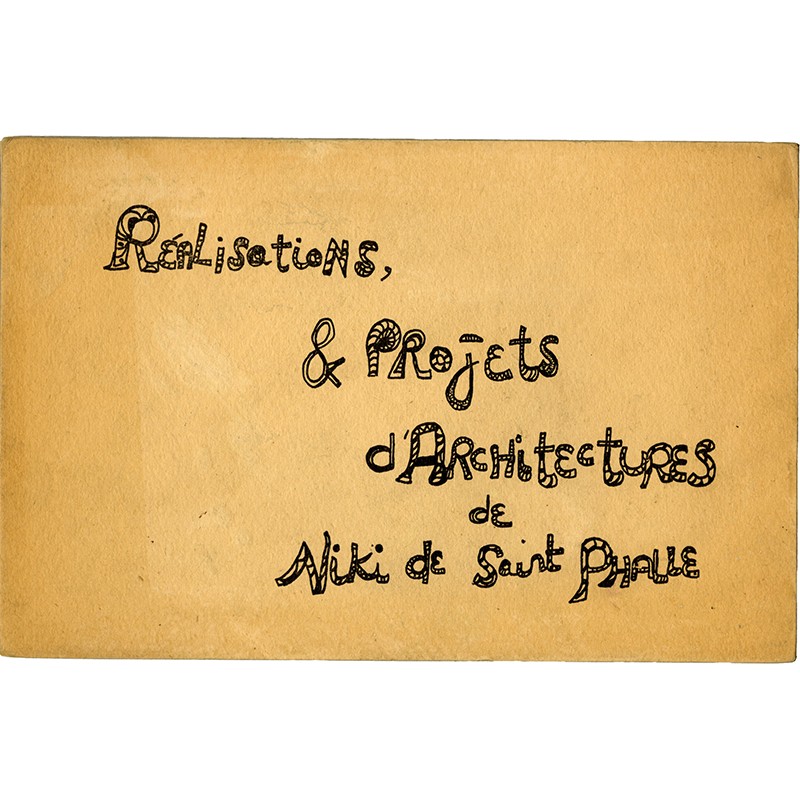 RÉALisatioNS,
& PRojEts
d'ARCHitECtURES
dE
Niki dE Saint PHALLE